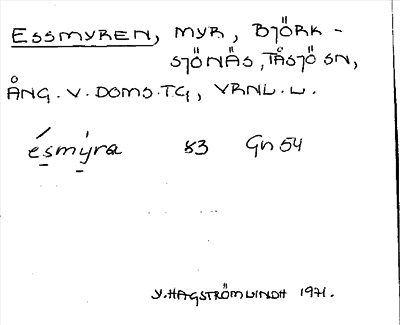 ESSMYREN, MYR, BJÖRK-
SJÖNÄS, TÅSJÖ SN,
ÅNG. V. DOMS. TG, VRNL. L.
ésmýra 83 Gn 54
Y. HAGSTRÖM LINDH 1971.